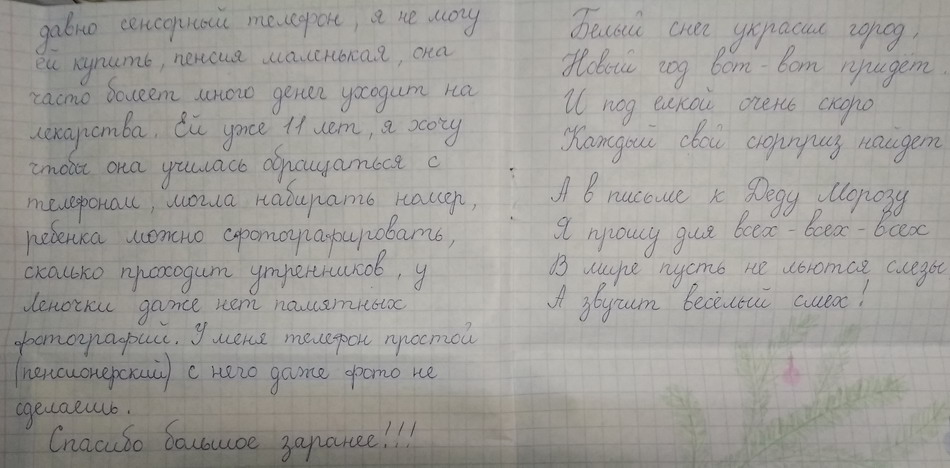 давно сенсорный телефон, я не могу
ей купить, пенсия маленькая, она
часто болеет много денег уходит на
лекарства. Ей уже 11 лет, я хочу
чтобы она училась обращаться с
телефоном, могла набирать номер,
ребёнка можно сфотографировать,
сколько проходит утренников, у
Леночки даже нет памятных
фотографий. У меня телефон простой
(пенсионерский) с него даже фото не
сделаешь.
Спасибо большое заранее!!!
Белый снег украсил город,
Новый год вот-вот придёт.
И под елкой очень скоро
Каждый свой сюрприз найдет
А в письме к Деду Морозу
Я прошу для всех-всех-всех
В мире пусть не льются слезы
А звучит весёлый смех!